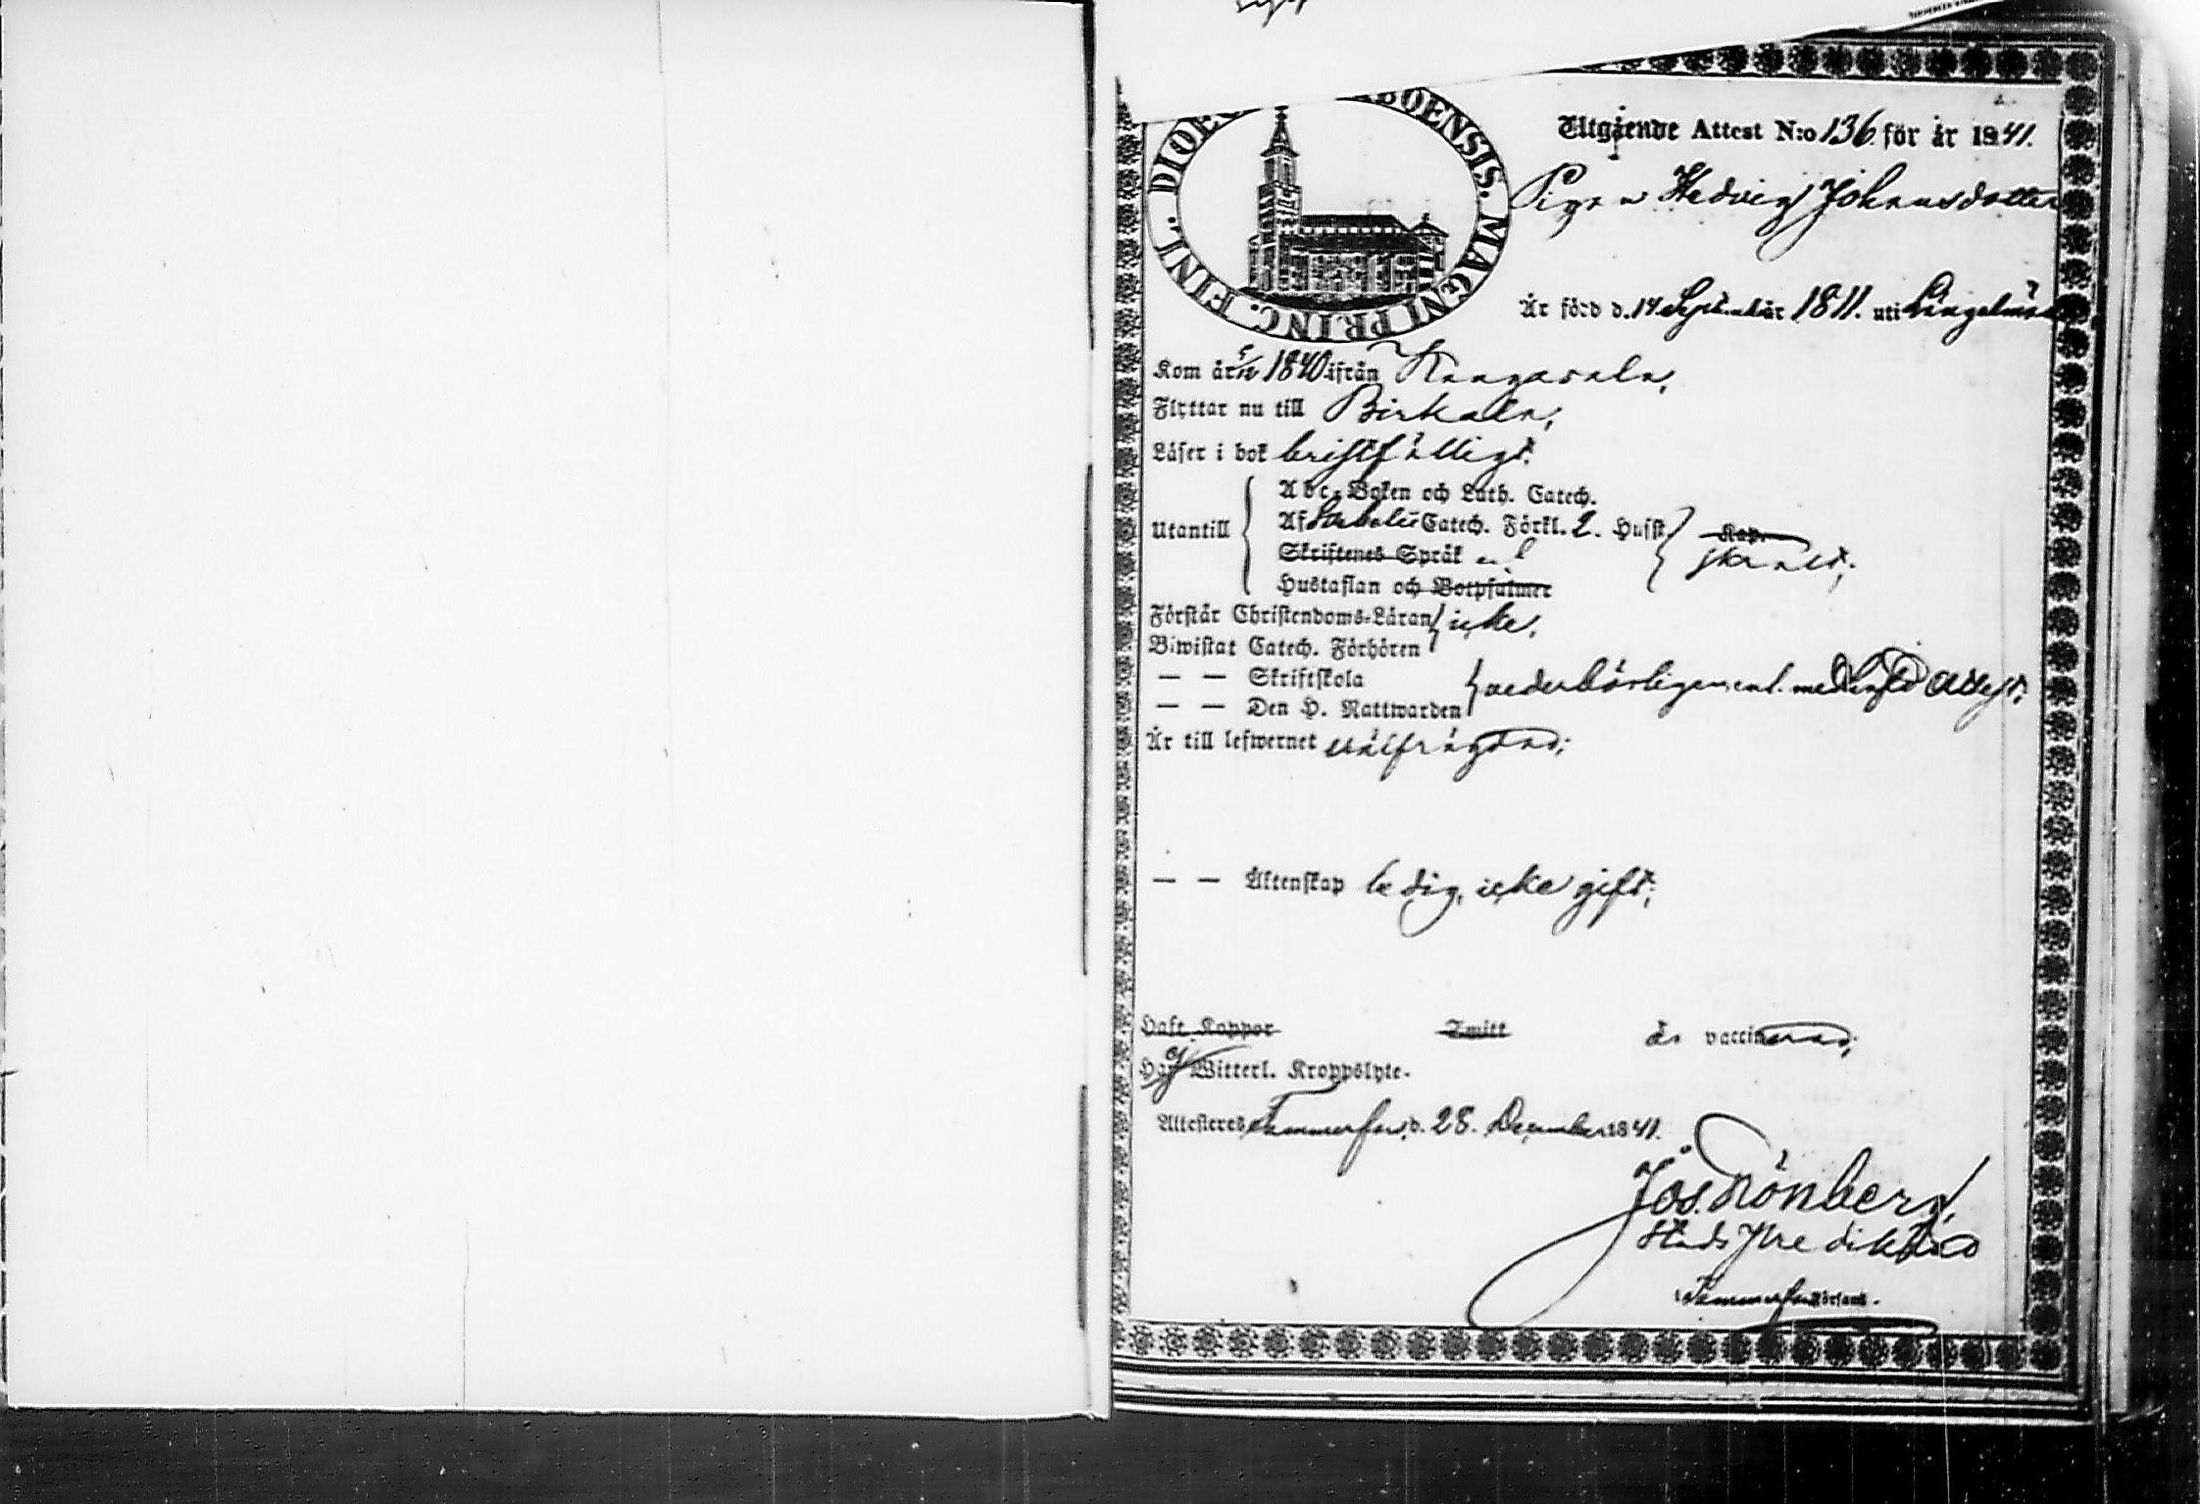 DIOEC. ABOENSIS. MAGNI PRINC. FINL.
Utgående Attest N:o 136 för år 1841.
Pigan Hedvig Johansdotter
Är förd d. 14 September 1811. uti Längelmäki
Kom år 1840 ifrån Kangasala,
Flyttar nu till Birkala,
Läser i bok bristfälligt.
Abc-Boken och Luth. Catech.
Utantill Af Catech. Förkl. 2. Hufst. Kap.
Skriftenes Språk
Hustaflan och Botpsalmer
Förstår Christendoms-Läran icke.
Biwistat Catech. Förhören
— — Skriftskola
— — Den H. Nattwarden vederbörligen enl. medhafd Attest;
Är till lefwernet välfrägdad;
— — Äktenskap ledig, icke gift;
Haft Koppor är vaccinerad;
Har ej Witterl. Kroppslyte.
Attesteres Tammerfors, d. 28. December 1841.
Jos. Grönberg,
Stads Predikant
i Tammerfors Församl.